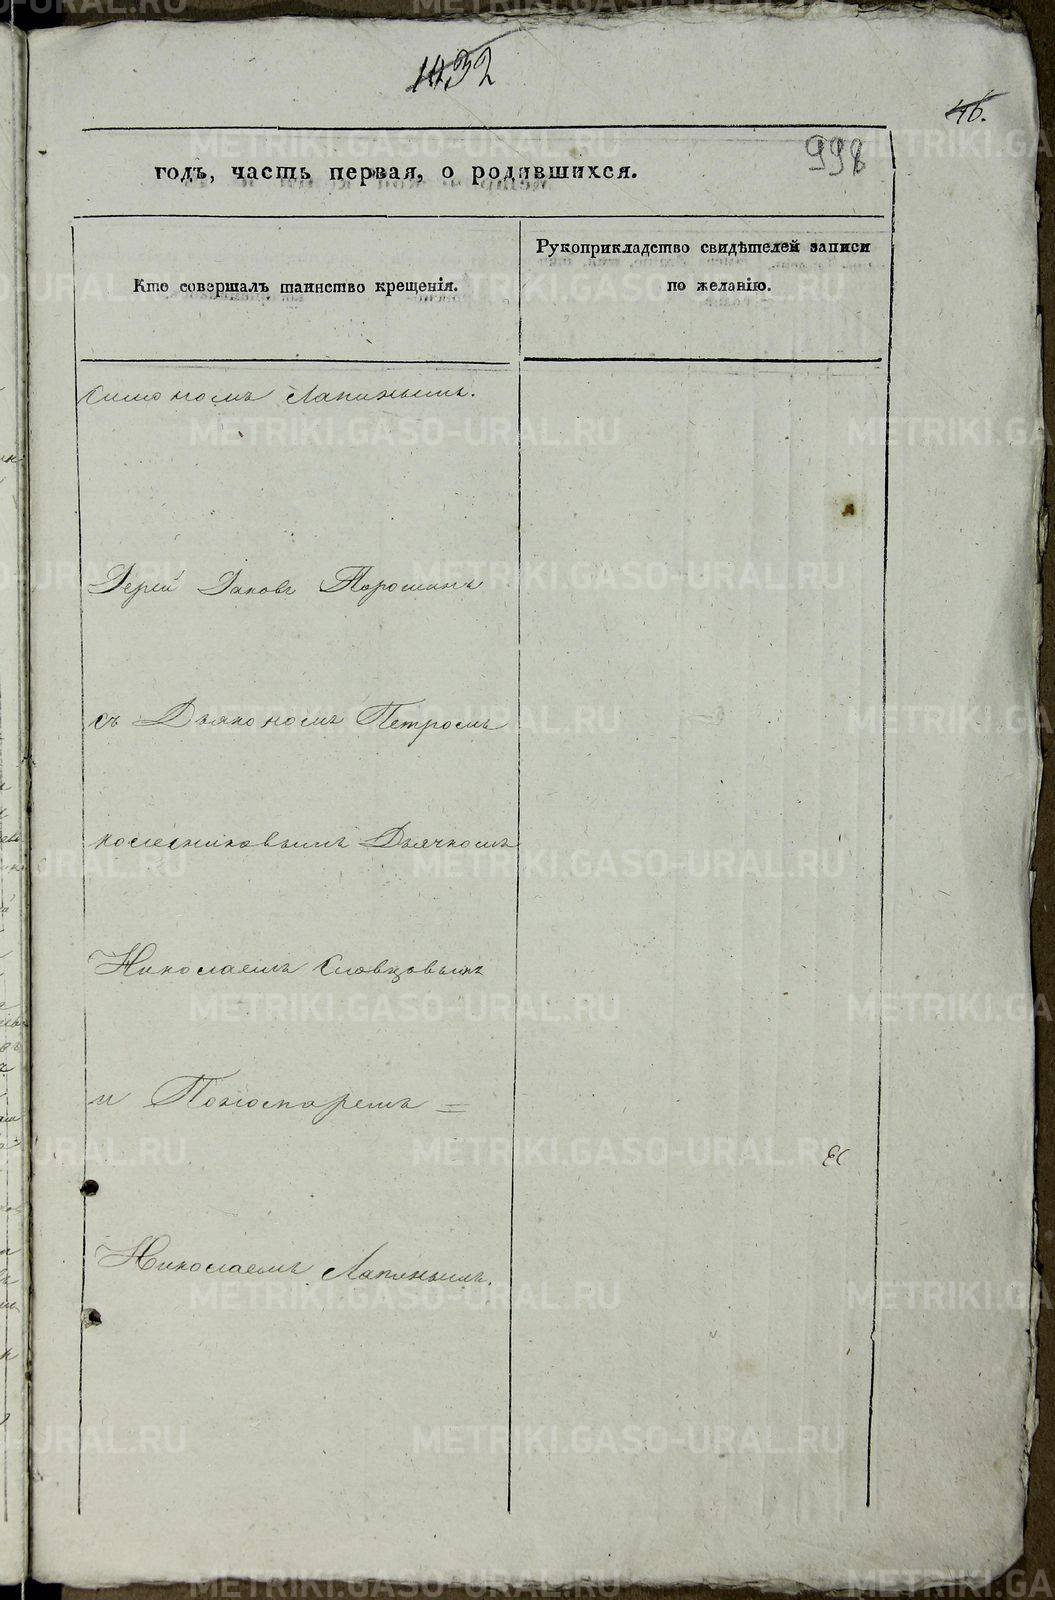 1432
46.
998
годъ, часть первая, о родившихся.
Кто совершалъ таинство крещенія.
Рукоприкладство свидѣтелей записи
по желанію.
Симономъ Лапинымъ.
Іерей Іаковъ Порошинъ
съ Дьякономъ Петромъ
Дьячкомъ
Николаемъ Словцовымъ
и Пономаремъ =
Николаемъ Лапинымъ.
METRIKI.GASO-URAL.RU